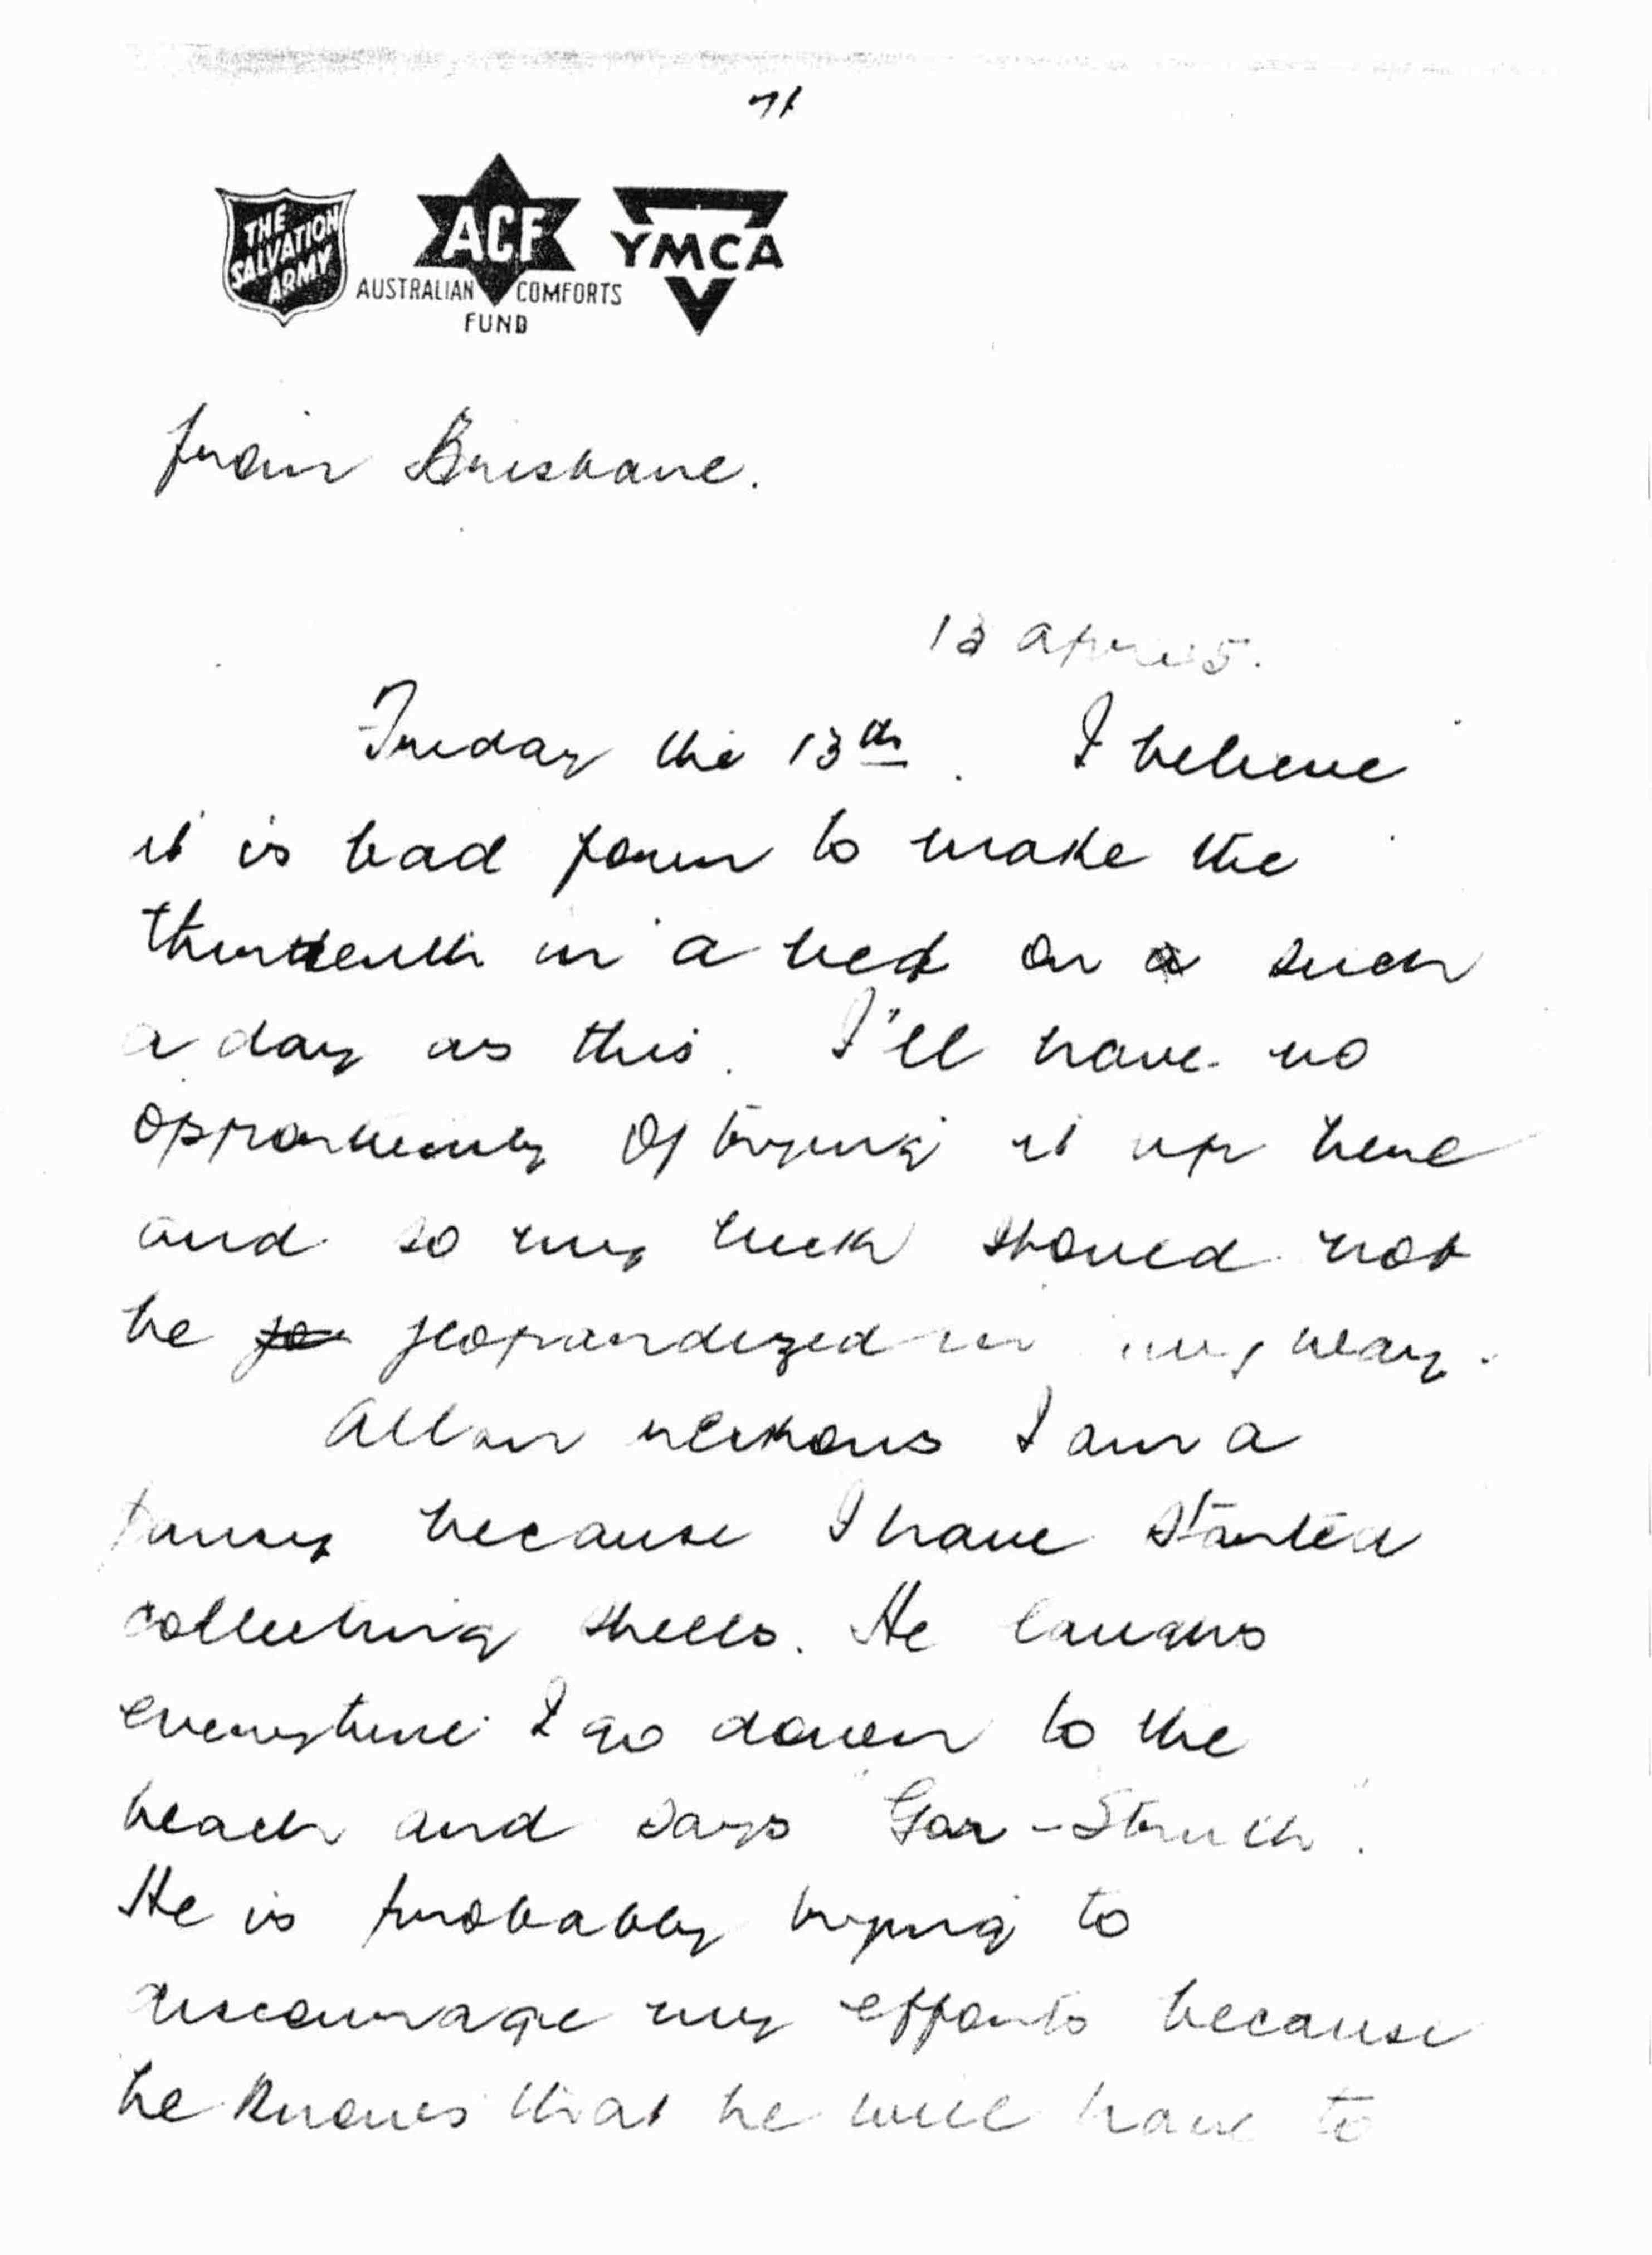 71
THE
SALVATION
ARMY
ACF
AUSTRALIAN COMFORTS
FUND
YMCA
from Brisbane.
13 April 5.
Friday the 13th. I believe
it is bad form to make the
thirteenth in a bed on such
a day as this. I'll have no
opportunity of trying it up here
and so my luck should not
be jeopardized in way.
Allan reckons I am a
pansy because I have started
collecting shells. He laughs
everytime I go down to the
beach and says "Gor-Struth".
He is probably trying to
discourage my efforts because
he knows that he will have to